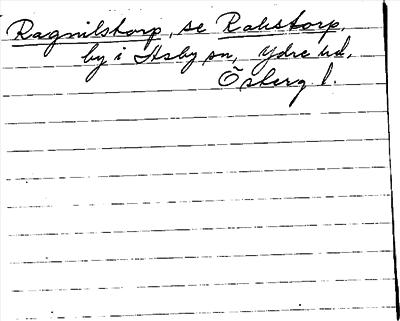 Ragnilstorp, se Rakstorp,
by i Asby sn, Ydre hd,
Österg l.